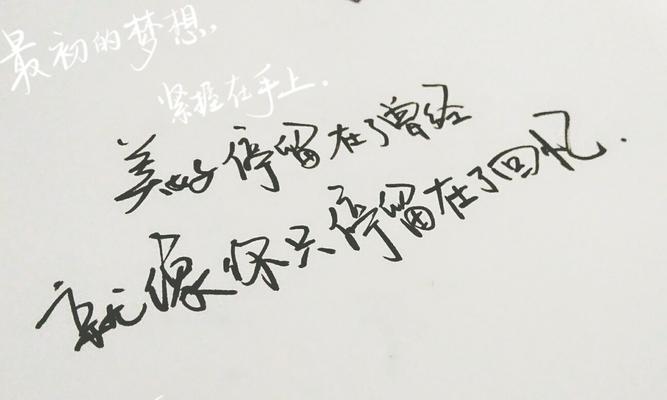 最初的梦想，
紧握在手上.
美好停留在了曾经
就像你只停留在了回忆.